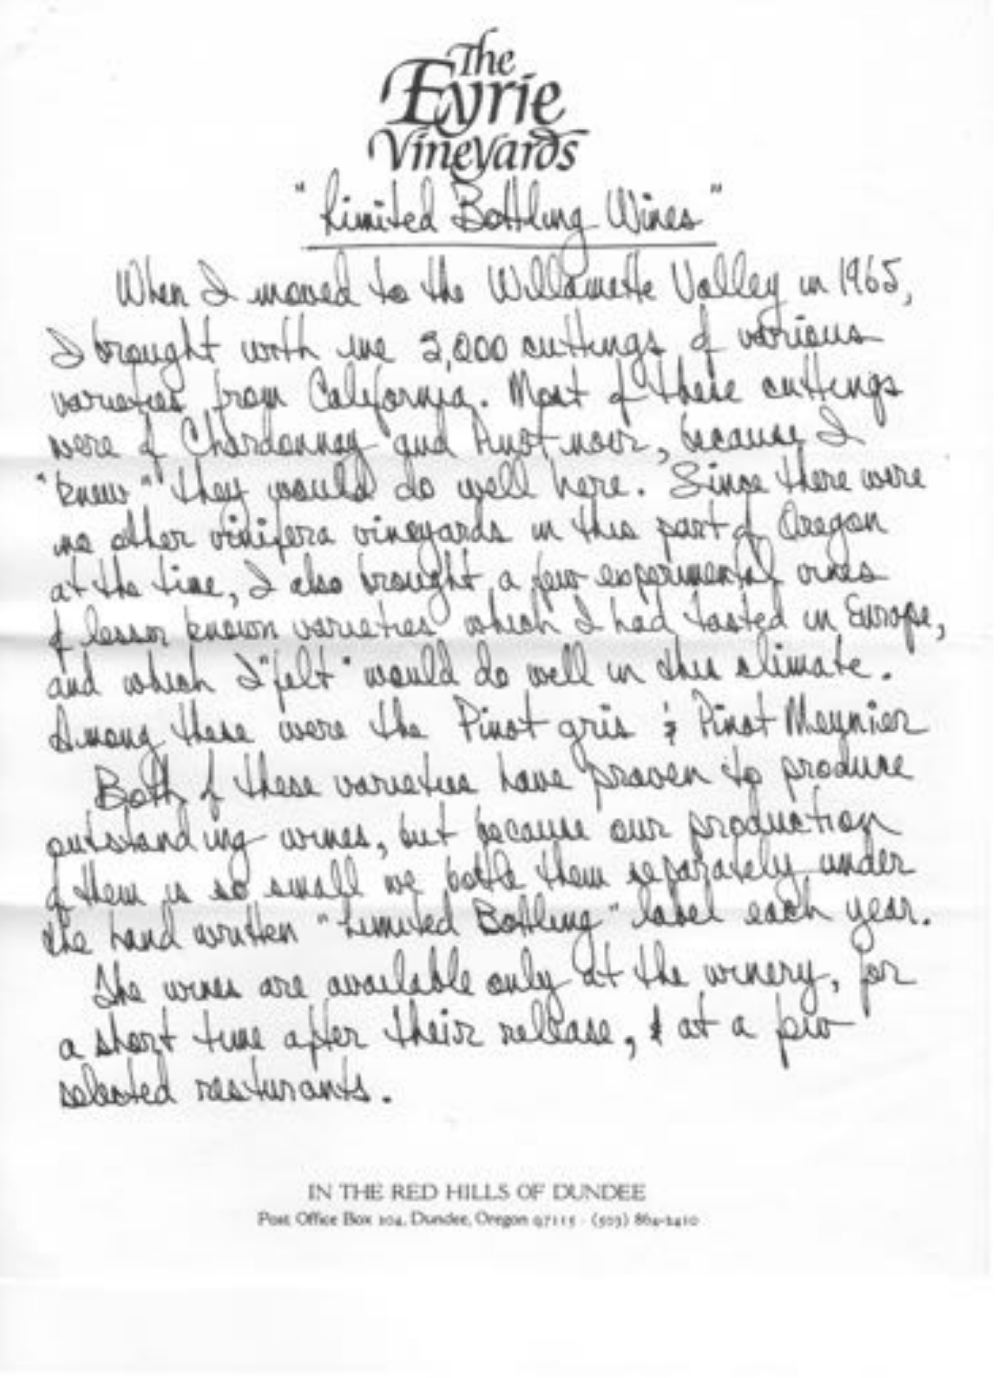 The
Eyrie
Vineyards
"Limited Bottling Wines"
When I moved to the Willamette Valley in 1965,
I brought with me 3,000 cuttings of various
varieties from California. Most of these cuttings
were of Chardonnay and Pinot noir, because I
"knew" they would do well here. Since there were
no other vinifera vineyards in this part of Oregon
at the time, I also brought a few experimental vines
of lesser known varieties which I had tasted in Europe,
and which I "felt" would do well in this climate.
Among these were the Pinot gris & Pinot Meunier
Both of these varieties have proven to produce
outstanding wines, but because our production
of them is so small we bottle them separately under
the hand written "Limited Bottling" label each year.
The wines are available only at the winery, for
a short time after their release, & at a few
selected resturants.
IN THE RED HILLS OF DUNDEE
Post Office Box 204, Dundee, Oregon 97115 · (503) 864-2410